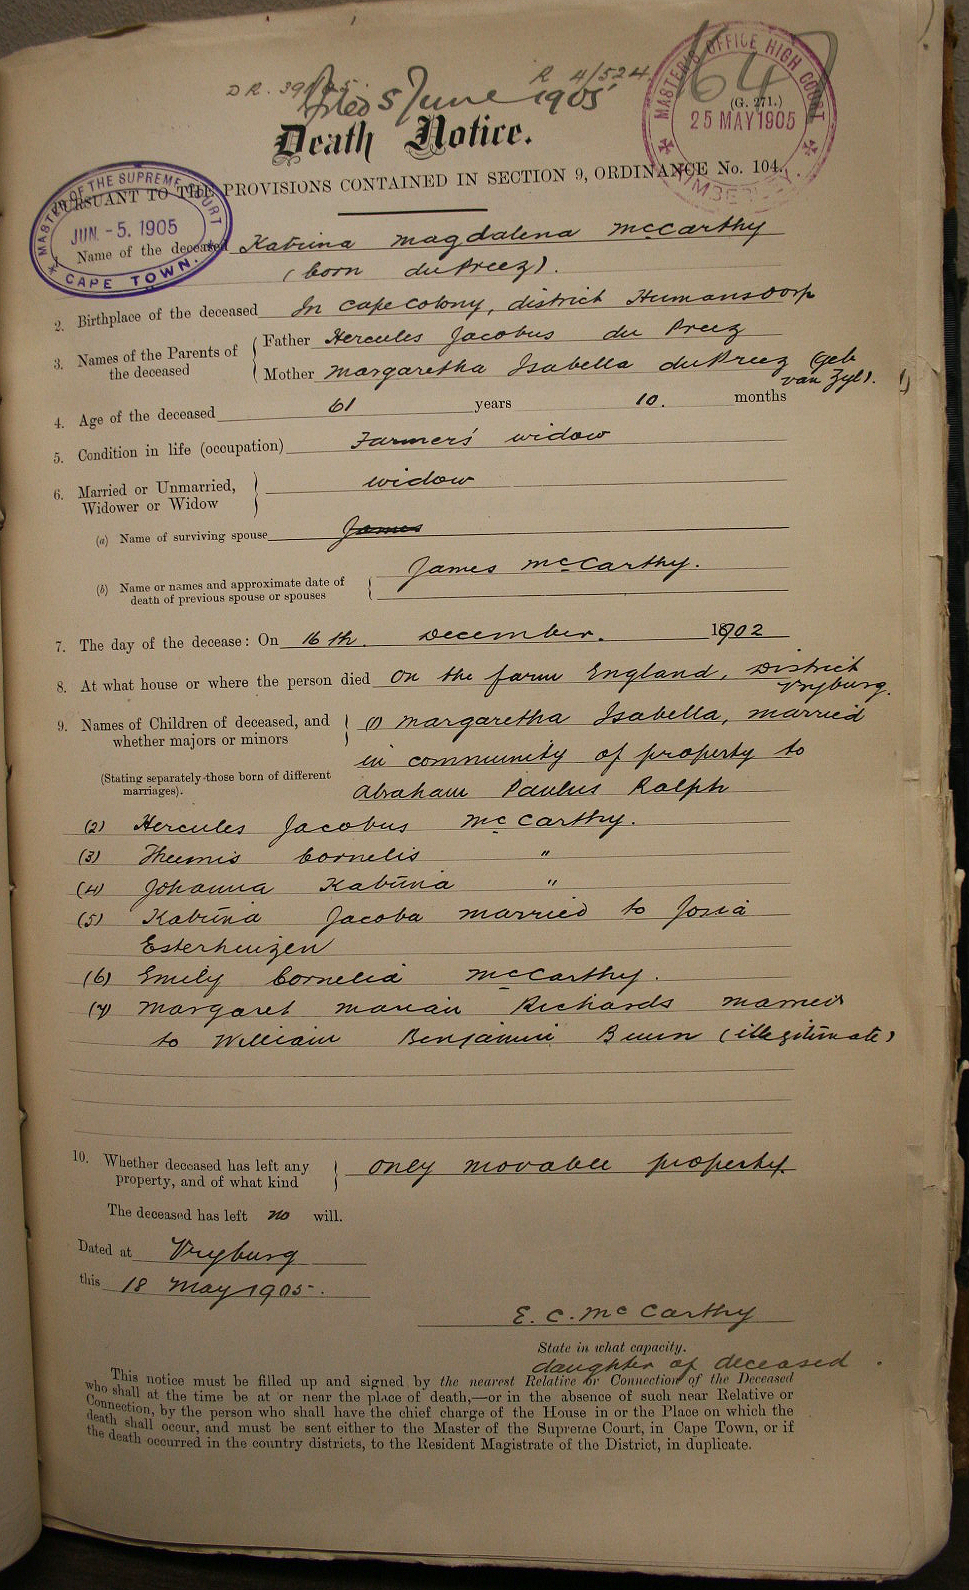 DR. 39/05. R 4/524
Filed 5 June 1905
647
MASTER'S OFFICE HIGH COURT
25 MAY 1905
KIMBERLEY.
(G. 271.)
Death Notice.
PURSUANT TO THE PROVISIONS CONTAINED IN SECTION 9, ORDINANCE No. 104.
MASTER OF THE SUPREME COURT
JUN -5. 1905
CAPE TOWN.
1. Name of the deceased Katrina Magdalena McCarthy
(born du Preez).
2. Birthplace of the deceased In Cape Colony, district Humansdorp
3. Names of the Parents of the deceased { Father Hercules Jacobus du Preez
Mother Margaretha Isabella du Preez (geb van Zyl).
4. Age of the deceased 61 years 10. months
5. Condition in life (occupation) Farmers' widow
6. Married or Unmarried, Widower or Widow } widow
(a) Name of surviving spouse James
(b) Name or names and approximate date of death of previous spouse or spouses { James McCarthy.
7. The day of the decease: On 16th. December. 1902
8. At what house or where the person died On the farm England, District Vryburg.
9. Names of Children of deceased, and whether majors or minors } (1) Margaretha Isabella, married
in community of property to
(Stating separately those born of different marriages). Abraham Paulus Ralph
(2) Hercules Jacobus McCarthy.
(3) Theunis Cornelis "
(4) Johanna Katrina "
(5) Katrina Jacoba married to Josia
Esterhuizen
(6) Emily Cornelia McCarthy.
(7) Margaret Marian Richards married
to William Benjamin (illegitimate)
10. Whether deceased has left any property, and of what kind } Only movable property
The deceased has left no will.
Dated at Vryburg
this 18 May 1905.
E. C. McCarthy
State in what capacity.
daughter of deceased.
This notice must be filled up and signed by the nearest Relative or Connection of the Deceased
who shall at the time be at or near the place of death,—or in the absence of such near Relative or
Connection, by the person who shall have the chief charge of the House in or the Place on which the
death shall occur, and must be sent either to the Master of the Supreme Court, in Cape Town, or if
the death occurred in the country districts, to the Resident Magistrate of the District, in duplicate.